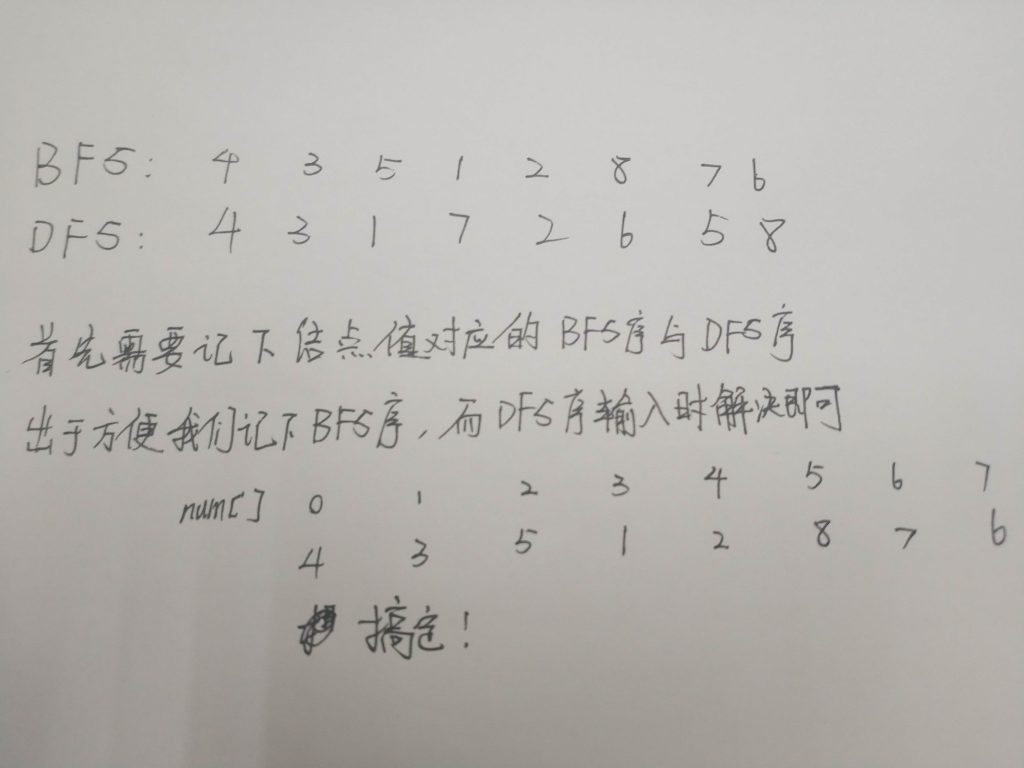 BFS: 4 3 5 1 2 8 7 6
DFS: 4 3 1 7 2 6 5 8
首先需要记下结点值对应的BFS序与DFS序
出于方便我们记下BFS序,而DFS序输入时解决即可
num[] 0 1 2 3 4 5 6 7
4 3 5 1 2 8 7 6
搞定!